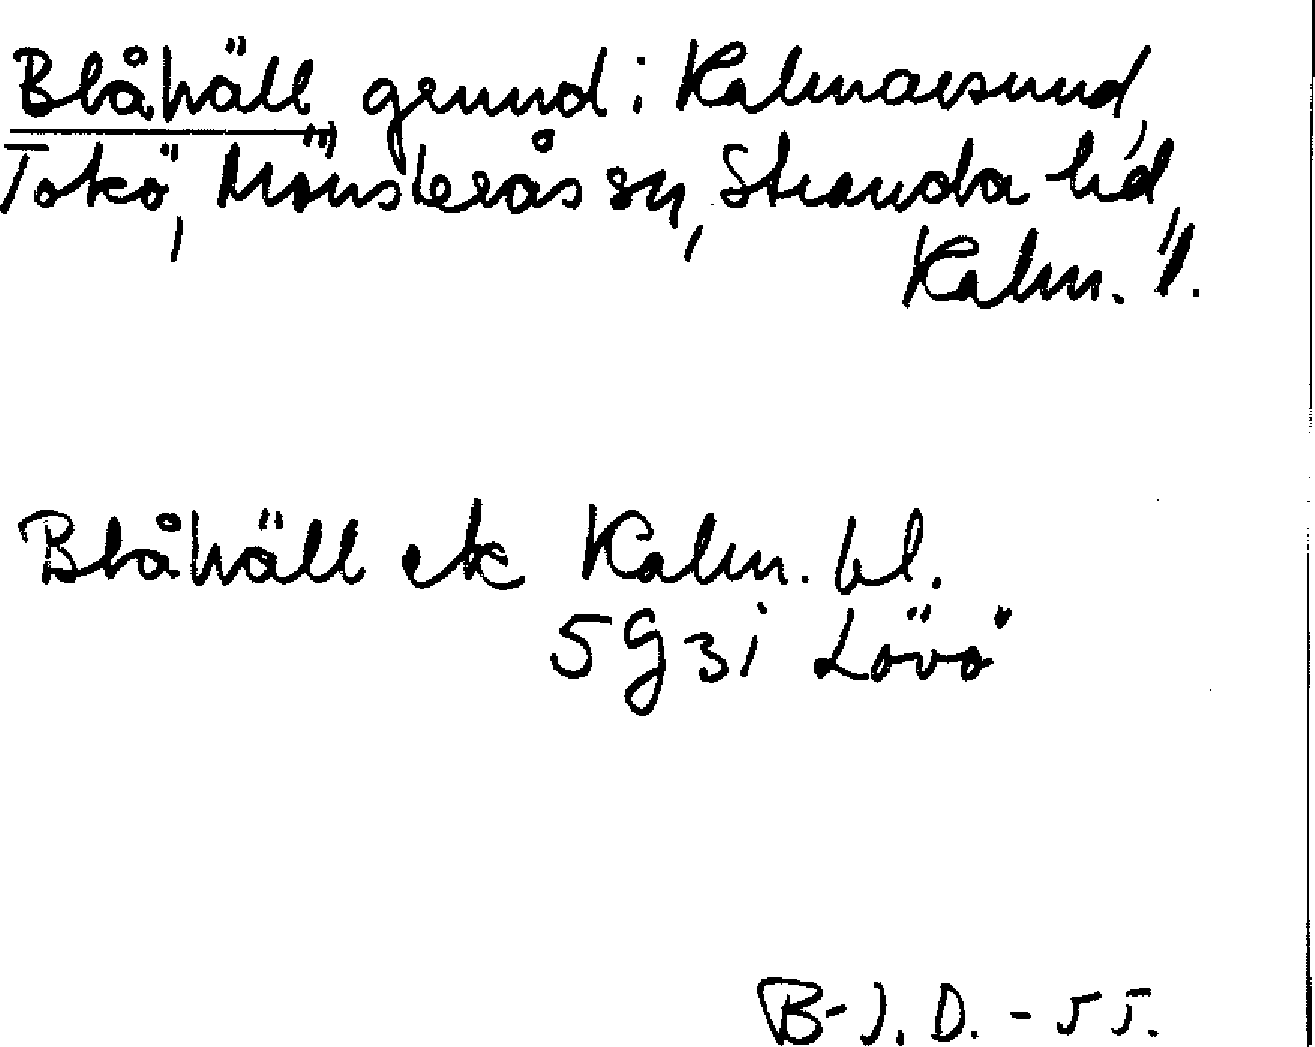 Blåhäll, grund i Kalmarsund,
Tokö, Mönsterås sn, Stranda hd,
Kalm. l.
Blåhäll ek Kalm. bl.
5 G 3 i Lövö
B-J. D. - 55.